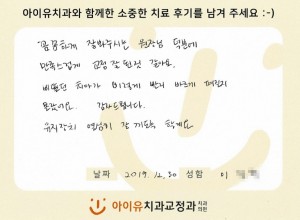 아이유치과와 함께한 소중한 치료 후기를 남겨 주세요 :-)
꼼꼼하게 잘봐주시는 원장님 덕분에
만족스럽게 교정 잘 된것 같아요.
삐뚤던 치아가 이렇게 반듯 바르게 펴질지
몰랐어요. 감사드립니다.
유지장치 열심히 잘 끼도록 할게요.
날짜 2019. 12. 30 성함 이
아이유치과교정과 치과의원